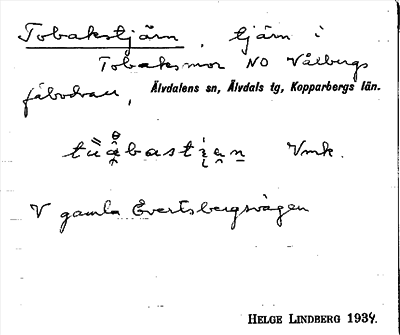 Tobakstjärn, tjärn i
Tobaksmor NO Vålbergs
fäbodvall, Älvdalens sn, Älvdals tg, Kopparbergs län.
Vmk.
V gamla Evertsbergsvägen
HELGE LINDBERG 1934.